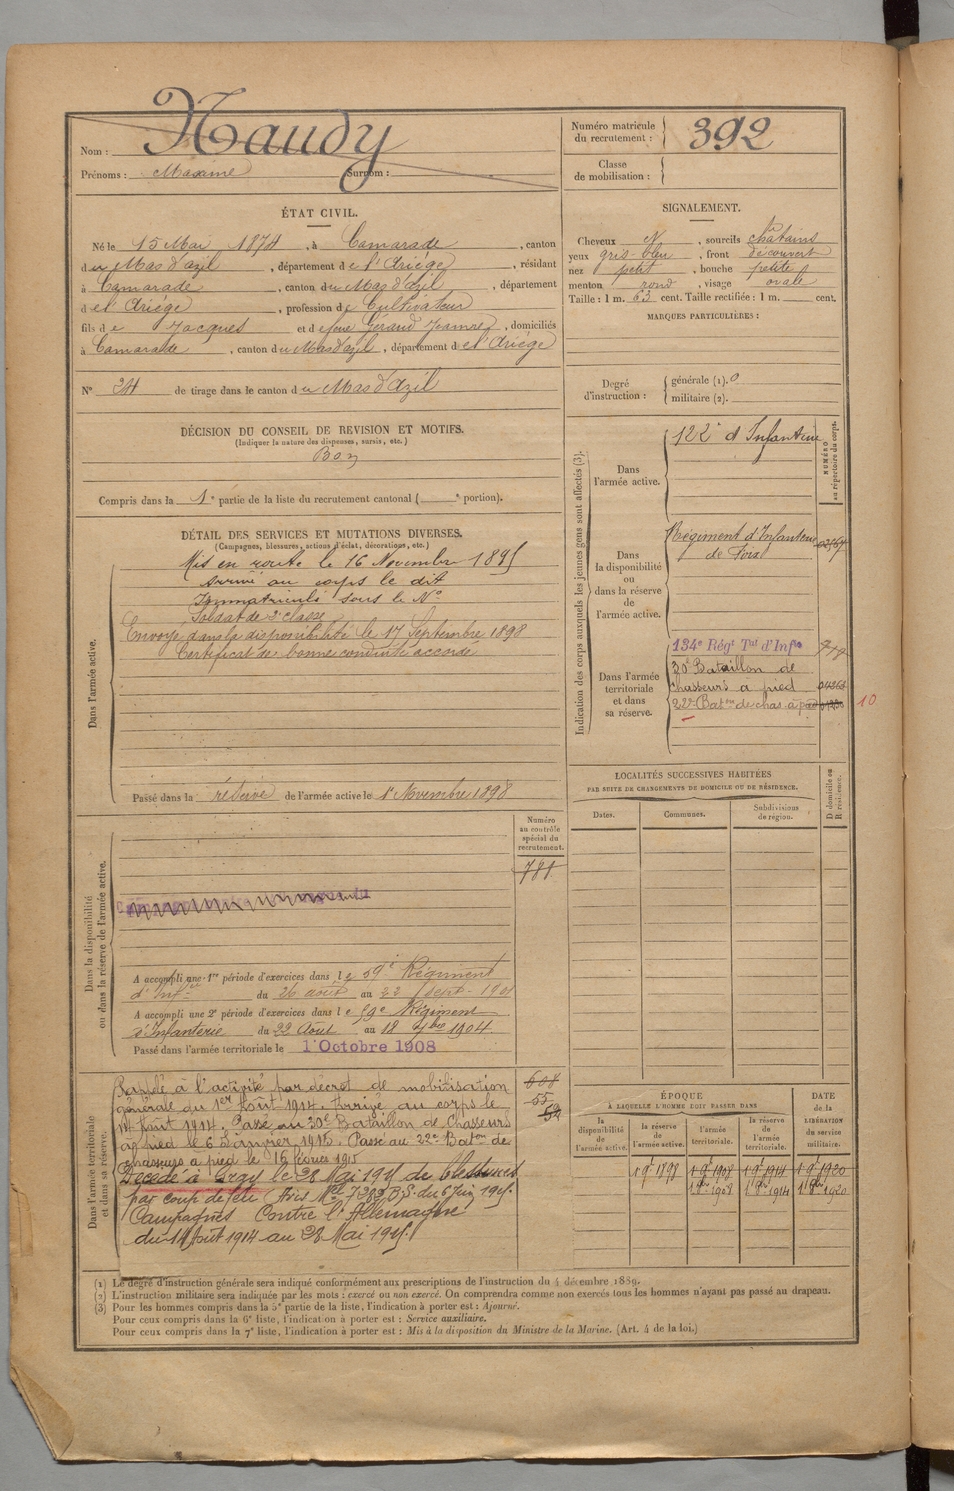 Nom : Naudy
Prénoms : Maxime Surnom :
Numéro matricule du recrutement : 392
Classe de mobilisation :
ÉTAT CIVIL.
Né le 15 Mai 1874, à Camarade, canton
du Mas d'azil, département de l'Ariége, résidant
à Camarade, canton du Mas d'azil, département
de l'Ariége, profession de Cultivateur
fils de Jacques et de feue Géraud Jeanne, domiciliés
à Camarade, canton du Mas d'azil, département de l'Ariége
N° 24 de tirage dans le canton du Mas d'Azil
SIGNALEMENT.
Cheveux N, sourcils châtains
yeux gris-bleu, front découvert
nez petit, bouche petite
menton rond, visage ovale
Taille : 1 m. 63 cent. Taille rectifiée : 1 m. cent.
MARQUES PARTICULIÈRES :
Degré d'instruction : générale (1). 0
militaire (2).
DÉCISION DU CONSEIL DE REVISION ET MOTIFS.
(Indiquer la nature des dispenses, sursis, etc.)
Bon
Compris dans la 1e partie de la liste du recrutement cantonal ( e portion).
DÉTAIL DES SERVICES ET MUTATIONS DIVERSES.
(Campagnes, blessures, actions d'éclat, décorations, etc.)
Dans l'armée active.
Mis en route le 16 Novembre 1895
Arrivé au corps le dit
Immatriculé sous le N°
Soldat de 2e classe
Envoyé dans la disponibilité le 17 Septembre 1898
Certificat de bonne conduite accordé
Passé dans la réserve de l'armée active le 1er Novembre 1898
Indication des corps auxquels les jeunes gens sont affectés (3).
NUMÉRO au répertoire du corps.
Dans l'armée active.
122e d'Infanterie
Dans la disponibilité ou dans la réserve de l'armée active.
Régiment d'Infanterie
de Foix
Dans l'armée territoriale et dans sa réserve.
134e Régt Tal d'Infie
30e Bataillon de
chasseurs à pied
22e Baton de chas. à pied
10
LOCALITÉS SUCCESSIVES HABITÉES
PAR SUITE DE CHANGEMENTS DE DOMICILE OU DE RÉSIDENCE.
Dates. Communes. Subdivisions de région. D domicile ou R résidence.
Dans la disponibilité ou dans la réserve de l'armée active.
Numéro au contrôle spécial du recrutement.
781
A accompli une 1re période d'exercices dans le 59e Régiment
d'Infie du 26 août au 22 sept. 1901
A accompli une 2e période d'exercices dans le 59e Régiment
d'Infanterie du 22 Août au 18 7bre 1904
Passé dans l'armée territoriale le 1er Octobre 1908
Dans l'armée territoriale et dans sa réserve.
608
55
52
Rappelé à l'activité par décret de mobilisation
générale du 1er Août 1914. Arrivé au corps le
14 Août 1914. Passé au 30e Bataillon de Chasseurs
à pied le 6 Janvier 1915. Passé au 22e Baton de
Chasseurs à pied le 16 février 1915
Décédé à le 28 Mai 1915 de blessures
par coup de feu (Avis Mel 7383 du 6 Juin 1915.
Campagnes Contre l'Allemagne
du 14 Août 1914 au 28 Mai 1915.
ÉPOQUE
À LAQUELLE L'HOMME DOIT PASSER DANS
la disponibilité de l'armée active. la réserve de l'armée active. l'armée territoriale. la réserve de l'armée territoriale.
DATE de la LIBÉRATION du service militaire.
1 9e 1898 1 9e 1908 1 9e 1914 1 9e 1920
1 8bre 1908 1 8bre 1914 1 8bre 1920
(1) Le degré d'instruction générale sera indiqué conformément aux prescriptions de l'instruction du 4 décembre 1889.
(2) L'instruction militaire sera indiquée par les mots : exercé ou non exercé. On comprendra comme non exercés tous les hommes n'ayant pas passé au drapeau.
(3) Pour les hommes compris dans la 5e partie de la liste, l'indication à porter est : Ajourné.
Pour ceux compris dans la 6e liste, l'indication à porter est : Service auxiliaire.
Pour ceux compris dans la 7e liste, l'indication à porter est : Mis à la disposition du Ministre de la Marine. (Art. 4 de la loi.)